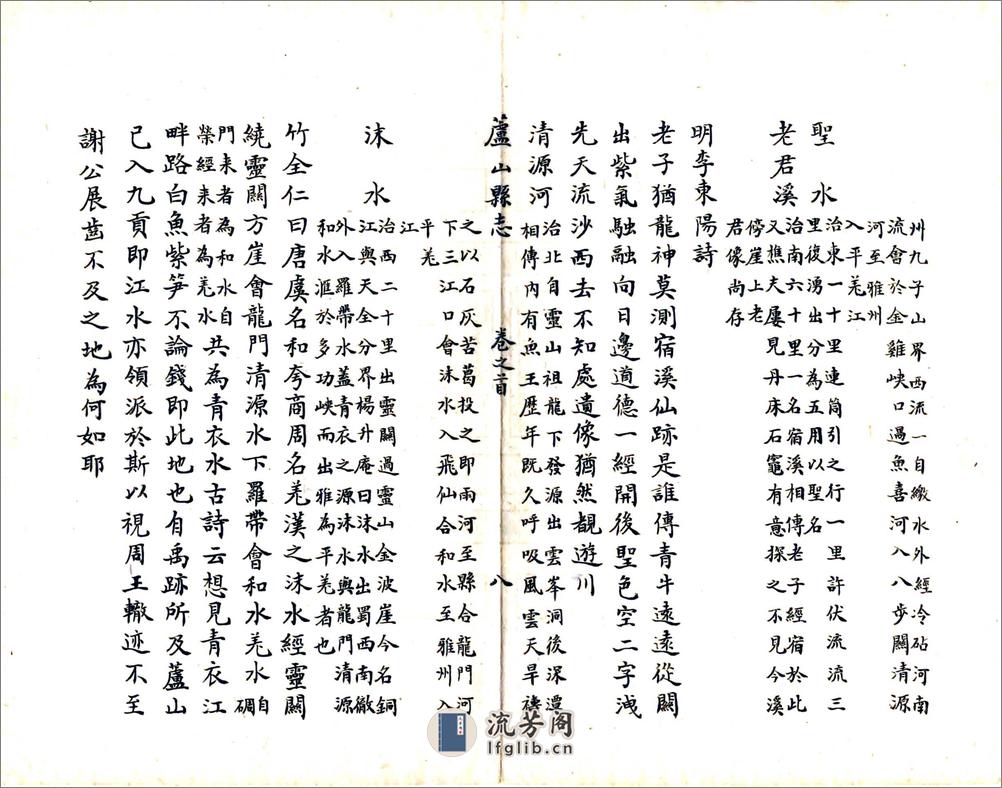 州九子山界西流一自繳水外經冷砧河南
流會於金雞峽口過魚喜河八八步關清源
河至雅州
入平羌江
聖水
治東一十里連筒引之行一里許伏流流三
里復湧出分為五用以聖名
老君溪
治南六十里一名宿溪相傳老子經宿於此
又樵夫屢見丹床石竈有意探之不見今溪
傍崖上老
君像尚存
明李東陽詩
老子猶龍神莫測宿溪仙跡是誰傳青牛遠遠從關
出紫氣融融向日邊道德一經開後聖色空二字洩
先天流沙西去不知處遺像猶然覩遊川
清源河
治北自靈山祖龍下發源出雲峯洞後深潭
相傳內有魚王歷年既久呼吸風雲天旱禱
蘆山縣志 卷之首 八
之以石灰苦葛投之即雨河至縣合龍門河
下三江口會沫水入飛仙合和水至雅州入
平羌
江
沫水
治西二十里出靈關過靈山金波崖今名銅
江與天全分界楊升庵曰沫水出蜀西南徼
外入羅帶水蓋青衣之源沫水與龍門清源
和水滙於多功峽而出雅為平羌者也
竹全仁曰唐虞名和夸商周名羌漢之沫水經靈關
繞靈關方崖會龍門清源水下羅帶會和水羌水自碉
門来者為和水自
榮經来者為羌水
共為青衣水古詩云想見青衣江
畔路白魚紫笋不論錢即此地也自禹跡所及蘆山
已入九貢即江水亦領派於斯以視周王轍迹不至
謝公展齒不及之地為何如耶
流芳阁
lfglib.cn